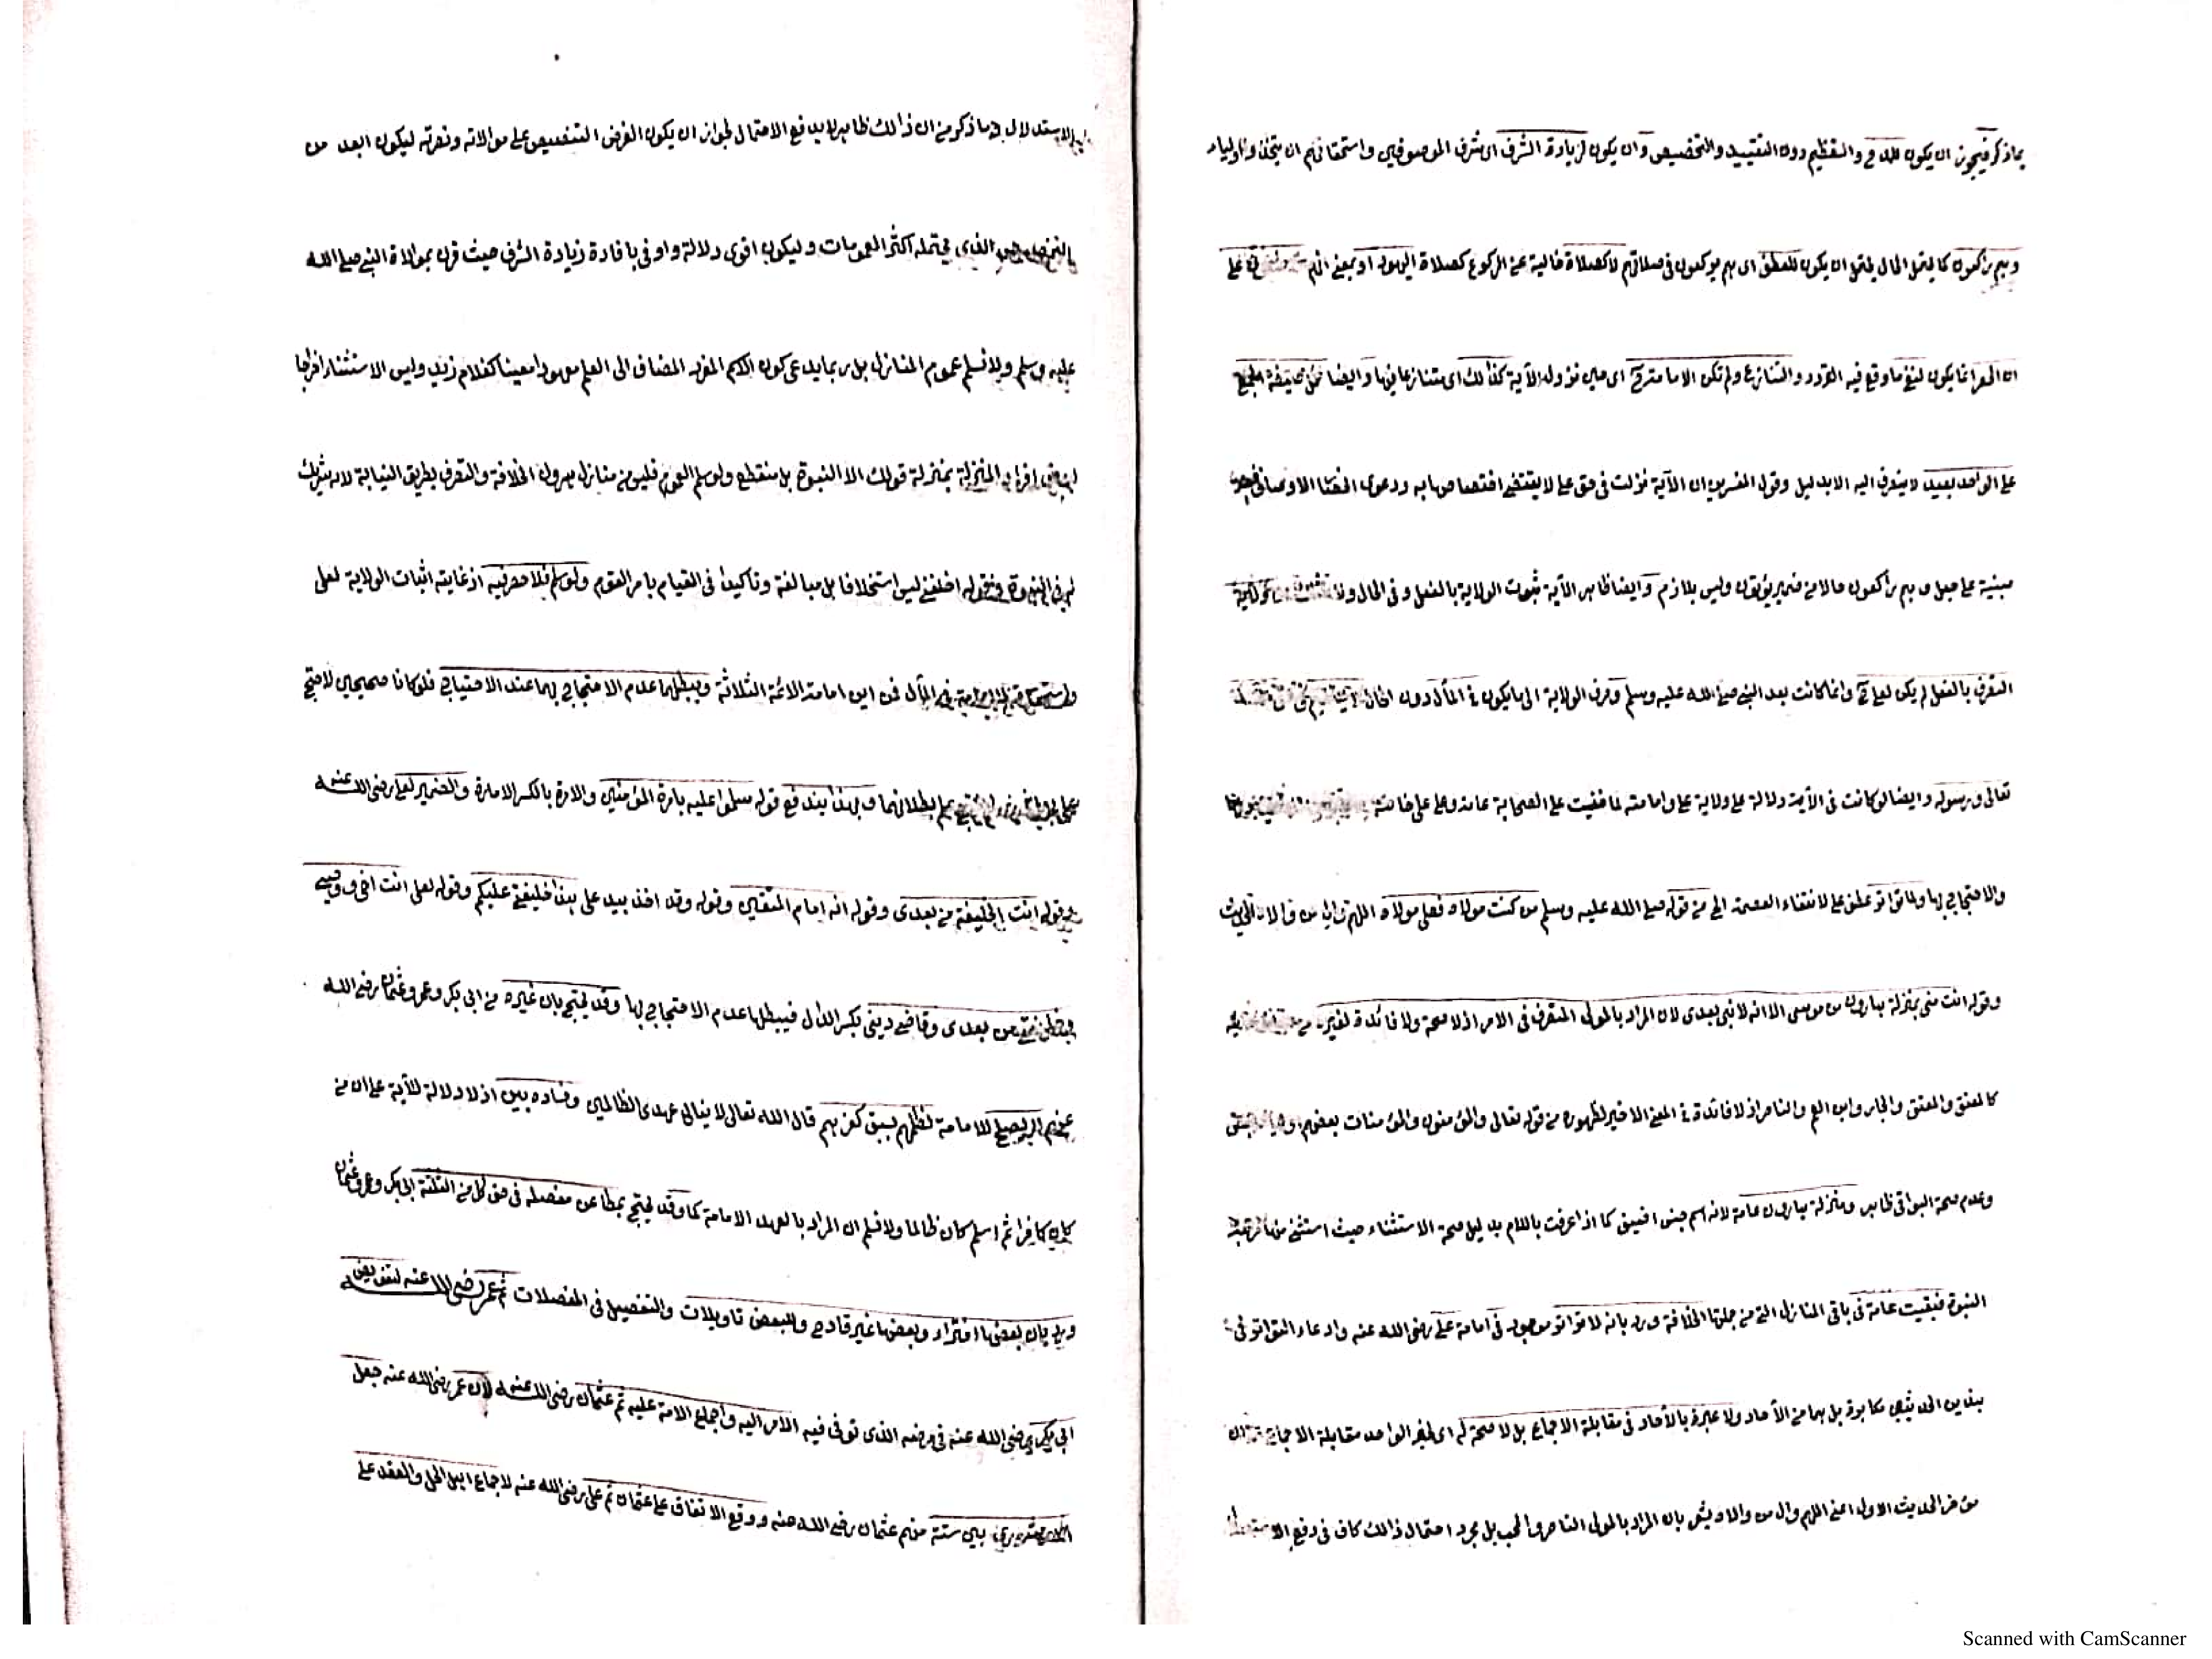 بما ذكر فيجوز ان يكون للمدح والتعظيم دون التقييد والتخصيص وان يكون لزيادة الشرف اى شرف الموصوفين واستحقاقهم ان يتخذوا اولياء
وهم راكعون كما يحتمل الحال يحتمل ان يكون للعطف اى هم يركعون فى صلاتهم لا كصلاة خالية عن الركوع كصلاة اليهود او بمعنى انهم على
ان الحصر انما يكون لنفى ما وقع فيه التردد والتنازع ولم تكن الامامة ح اى حين نزول الآية كذلك اى متنازعا فيها وايضا حمل صيغة الجمع
على الواحد بعيد لا يصرف اليه الا بدليل وقول المفسرين ان الآية نزلت فى حق على لا يقتضى اختصاصها به ودعوى انحصار الاوصاف فيه
مبنية على جعل وهم راكعون حالا من ضمير يؤتون وليس بلازم وايضا ظاهر الآية ثبوت الولاية بالفعل وفى الحال ولا
التصرف بالفعل لم يكن لعلى ح وانما كانت بعد النبى صلى الله عليه وسلم وصرف الولاية الى ما يكون فى المآل دون الحال لا يستقيم فى
تعالى ورسوله وايضا لو كانت فى الآية دلالة على ولاية على وامامته لما خفيت على الصحابة عامة وعلى على خاصة
والاحتجاج بها ولما تواتر عطف على لانتفاء العصمة الخ من قوله صلى الله عليه وسلم من كنت مولاه فعلى مولاه اللهم وال من والاه الحديث
وقوله انت منى بمنزلة هارون من موسى الا انه لا نبى بعدى لان المراد بالمولى المتصرف فى الامر اذ لا صحة ولا فائدة لغيره من
كالمعتق والمعتق والجار وابن العم والناصر اذ لا فائدة فى المعنى الاخير لظهوره من قوله تعالى والمؤمنون والمؤمنات بعضهم
وعدم صحة البواقى ظاهر ومنزلة هارون عامة لانه اسم جنس اضيف كما اذا عرفت باللام بدليل صحة الاستثناء حيث استثنى منها مرتبة
النبوة فبقيت عامة فى باقى المنازل التى من جملتها الخلافة ورد بانه لا تواتر موجود فى امامة على رضى الله عنه وادعاء التواتر فى
هذين الحديثين مكابرة بل هما من الآحاد ولا عبرة بالآحاد فى مقابلة الاجماع بل لا صحة له اى لخبر الواحد مقابلة الاجماع ان
مؤخر الحديث الاول اعنى اللهم وال من والاه يشعر بان المراد بالمولى الناصر والمحب بل مجرد احتمال ذلك كاف فى دفع الاستدلال
الاستدلال به ما ذكر من ان ذالك ظاهر لا يدفع الاحتمال لجواز ان يكون الغرض التنصيص على موالاته ونصرته ليكون ابعد من
التخصيص الذى يحتمله اكثر العمومات وليكون اقوى دلالة واوفى بافادة زيادة الشرف حيث قرن بموالاة النبى صلى الله
عليه وسلم ولا نسلم عموم المنازل بل ربما يدعى كون الاسم المفرد المضاف الى العلم معهودا معينا كغلام زيد وليس الاستثناء اخراجا
لبعض افراد المنزلة بمنزلة قولك الا النبوة بل منقطع ولو سلم العموم فليس من منازل هرون الخلافة والتصرف بطريق النيابة لانه شريك
له فى النبوة فقوله اخلفنى ليس استخلافا بل مبالغة وتاكيدا فى القيام بامر القوم ولو سلم فلا حصر فيه اذ غايته اثبات الولاية لعلى
واستحقاقه الامامة فى المآل فمن اين امامة الائمة الثلاثة ويبطلهما عدم الاحتجاج بهما عند الاحتياج فلو كانا صحيحين لاحتج
علم بطلانهما وبهذا يندفع قوله سلموا عليه بامرة المؤمنين والامرة بالكسر الامارة والضمير لعلى رضى الله عنه
وقوله انت الخليفة من بعدى وقوله انه امام المتقين وقوله وقد اخذ بيد على هذا خليفتى عليكم وقوله لعلى انت اخى ووصيى
وخليفتى من بعدى وقاضى دينى بكسر الدال فيبطلها عدم الاحتجاج بها وقد يحتج بان غيره من ابى بكر وعمر وعثمان رضى الله
عنهم لا يصلح للامامة لظلمهم لسبق كفرهم قال الله تعالى لا ينال عهدى الظالمين وفساده بين اذ لا دلالة للآية على ان من
كان كافرا ثم اسلم كان ظالما ولا نسلم ان المراد بالعهد الامامة كما وقد يحتج بمطاعن مفصلة فى حق كل من الثلثة ابى بكر وعمر وعثمان
ورد بان بعضها افتراء وبعضها غير قادح وللبعض تاويلات والتفصيل فى المفصلات ثم عمر رضى الله عنه لتفويض
ابى بكر رضى الله عنه فى مرضه الذى توفى فيه الامر اليه واجماع الامة عليه ثم عثمان رضى الله عنه لان عمر رضى الله عنه جعل
الامر شورى بين ستة منهم عثمان رضى الله عنه ووقع الاتفاق على عثمان ثم على رضى الله عنه لاجماع اهل الحل والعقد على
Scanned with CamScanner